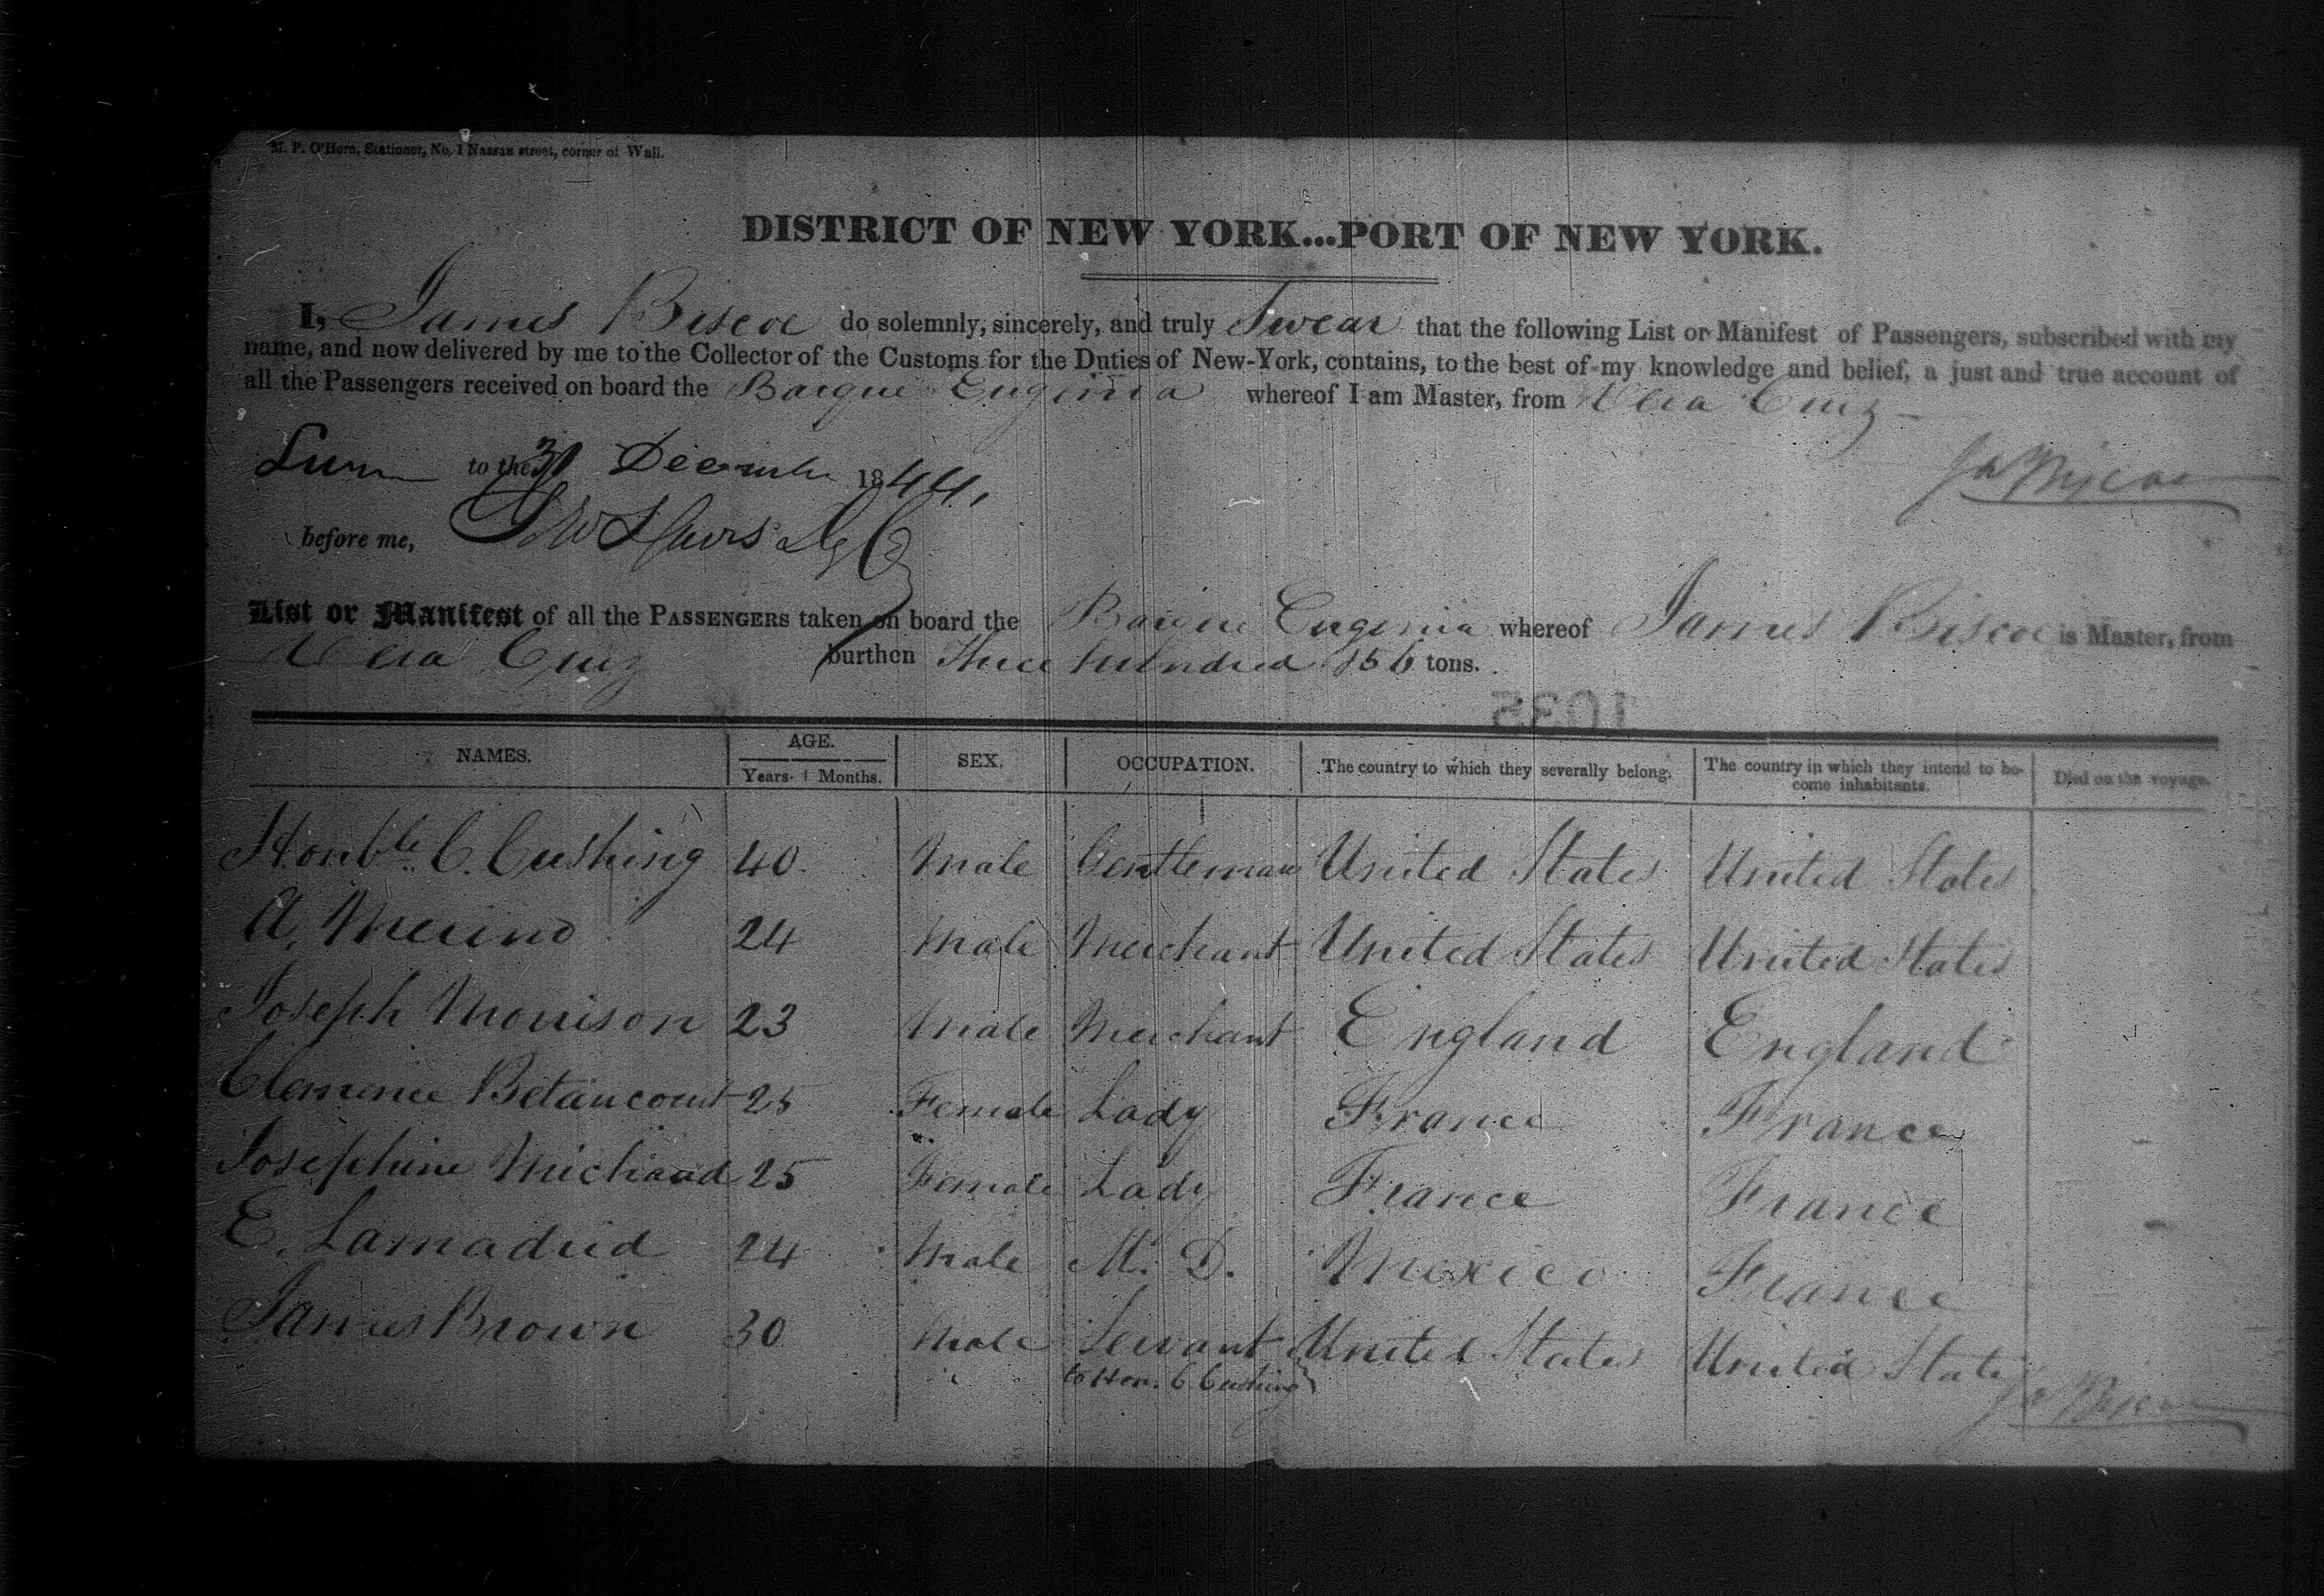 M. P. O'Hern, Stationer, No. 1 Nassau street, corner of Wall.
DISTRICT OF NEW YORK...PORT OF NEW YORK.
I, James Biscoe do solemnly, sincerely, and truly Swear that the following List or Manifest of Passengers, subscribed with my
name, and now delivered by me to the Collector of the Customs for the Duties of New-York, contains, to the best of my knowledge and belief, a just and true account of
all the Passengers received on board the Barque Eugenia whereof I am Master, from Vera Cruz
to the 31 December 1844.
Ja Biscoe
before me,
List or Manifest of all the PASSENGERS taken on board the Barque Eugenia whereof James Biscoe is Master, from
Vera Cruz burthen Three hundred 156 tons.
1035
NAMES. AGE. SEX. OCCUPATION. The country to which they severally belong. The country in which they intend to be- Died on the voyage.
Years. Months. come inhabitants.
Honble. C. Cushing 40. Male Gentleman United States United States
A. Merino 24 Male Merchant United States United States
Joseph Morrison 23 Male Merchant England England
Clemence Betancourt 25 Female Lady France France
Josephine Michaud 25 Female Lady France France
E. Lamadrid 24 Male M. D. Mexico France
James Brown 30 Male Servant United States United States
to Hon. C Cushing
Ja Biscoe